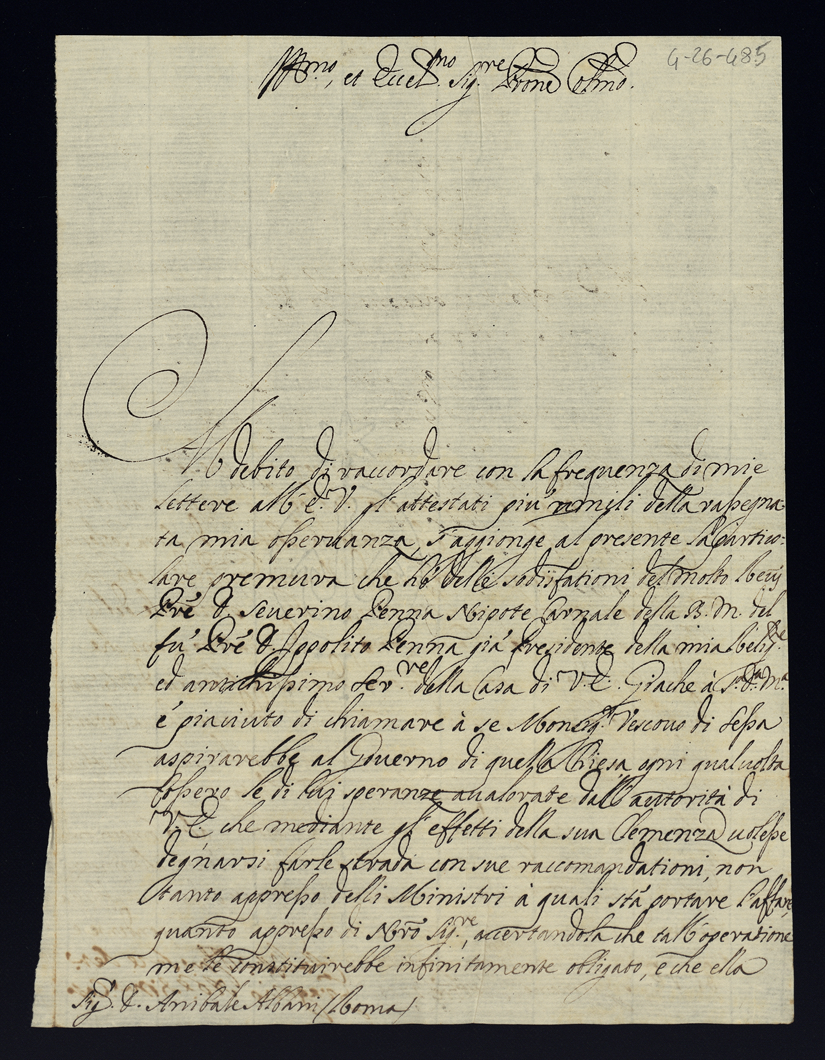 4-26-485
Ill.mo, et Eccel.mo Sig.re Prone Colmo.
Al debito di raccordare con la frequenza di mie
lettere all' E. V. gl' attestati più umili della rassegna
ta mia osservanza, s'aggionge al presente la partico=
lare premura che hò delle sodisfationi del molto
Prē D. Severino Penna Nipote Carnale della B. M. del
fu' Prē D. Ippolito Penna già Presidente della mia Relig.ne
ed antichissimo Ser.re della Casa di V. E. Giache à
è piaciuto di chiamare à se Monsig.r Vescovo di Sessa
aspirarebbe al Governo di quella Chiesa ogni qualvolta
fossero le di lui speranze avalorate dall' autorità di
V. E. che mediante gl' effetti della sua Clemenza volesse
degnarsi farle strada con sue raccomandationi, non
tanto appresso delli Ministri à quali stà portare l'affare,
quanto appresso di Nrō Sig.re, accertandola che tall' operatione
me le constituirebbe infinitamente obligato, e che ella
Sig.r D. Anibale Albani (Roma)